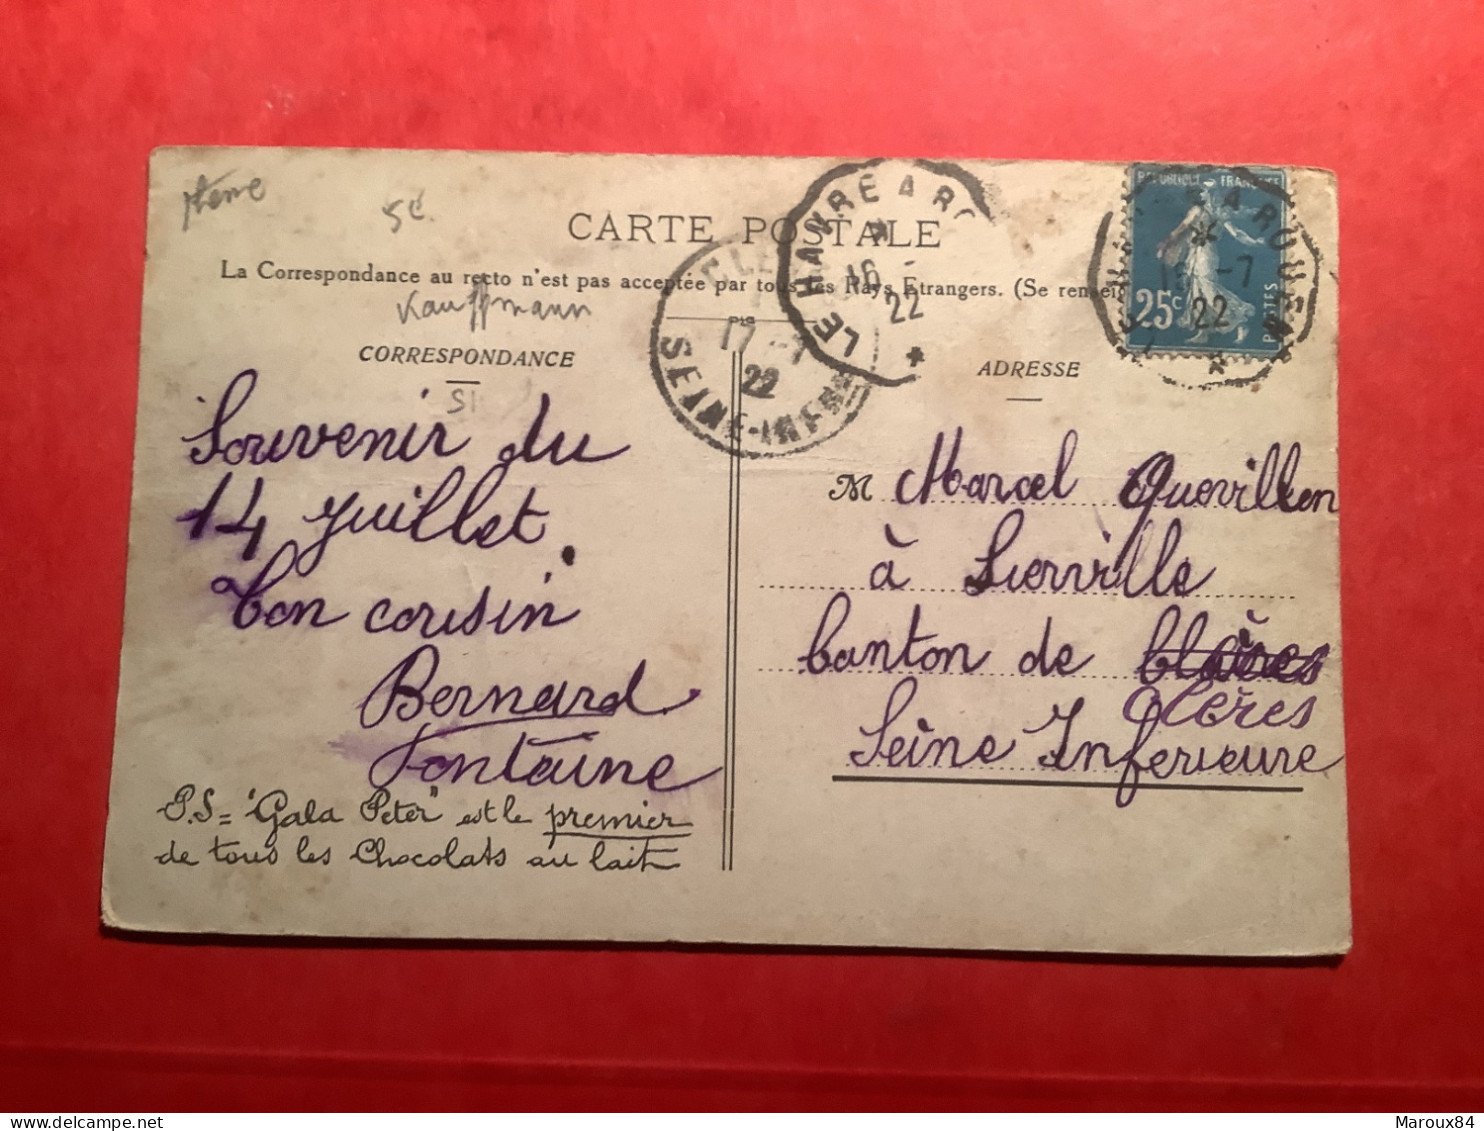 thème
5€
CARTE POSTALE
La Correspondance au recto n'est pas acceptée par tous les Pays Etrangers. (Se renseig
Kauffmann
CORRESPONDANCE
Souvenir du
14 juillet.
Ton cousin
Bernard
Fontaine
P.S = "Gala Peter" est le premier
de tous les Chocolats au lait
LE HAVRE A RO
16 -
22
CLE
17 -7
22
SEINE-INFRE
REPUBLIQUE FRANÇAISE
25c
POSTES
A ROUEN
-7
22
ADRESSE
M Marcel Quevillon
à Lierville
Canton de
Clères
Seine Inferieure
Maroux84